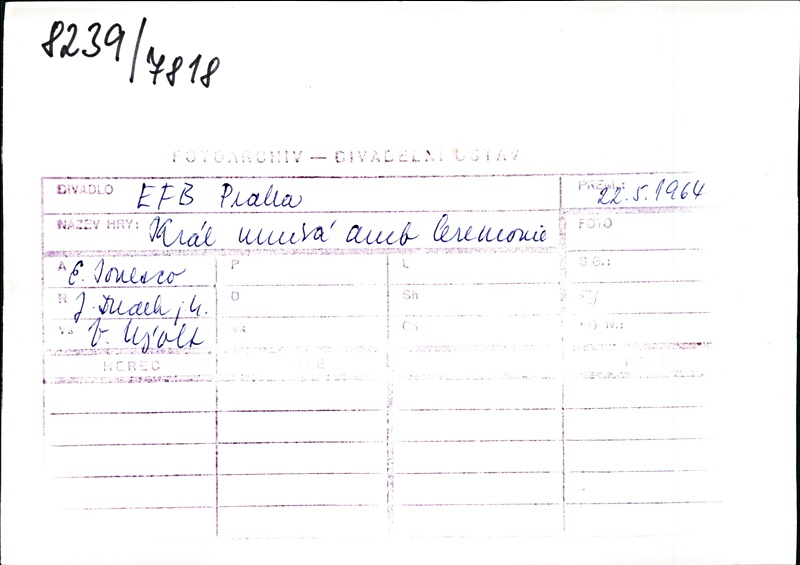 8239/7818
FOTOARCHIV — DIVADELNÍ ÚSTAV
DIVADLO EFB Praha PREM.: 22.5.1964
NÁZEV HRY: Král umírá aneb Ceremonie FOTO
A E. Ionesco P L SG.:
R J. Dudek j.h. D Sn Č/
Vs V. Nývlt VR Ch FG N.:
HEREC ROLE